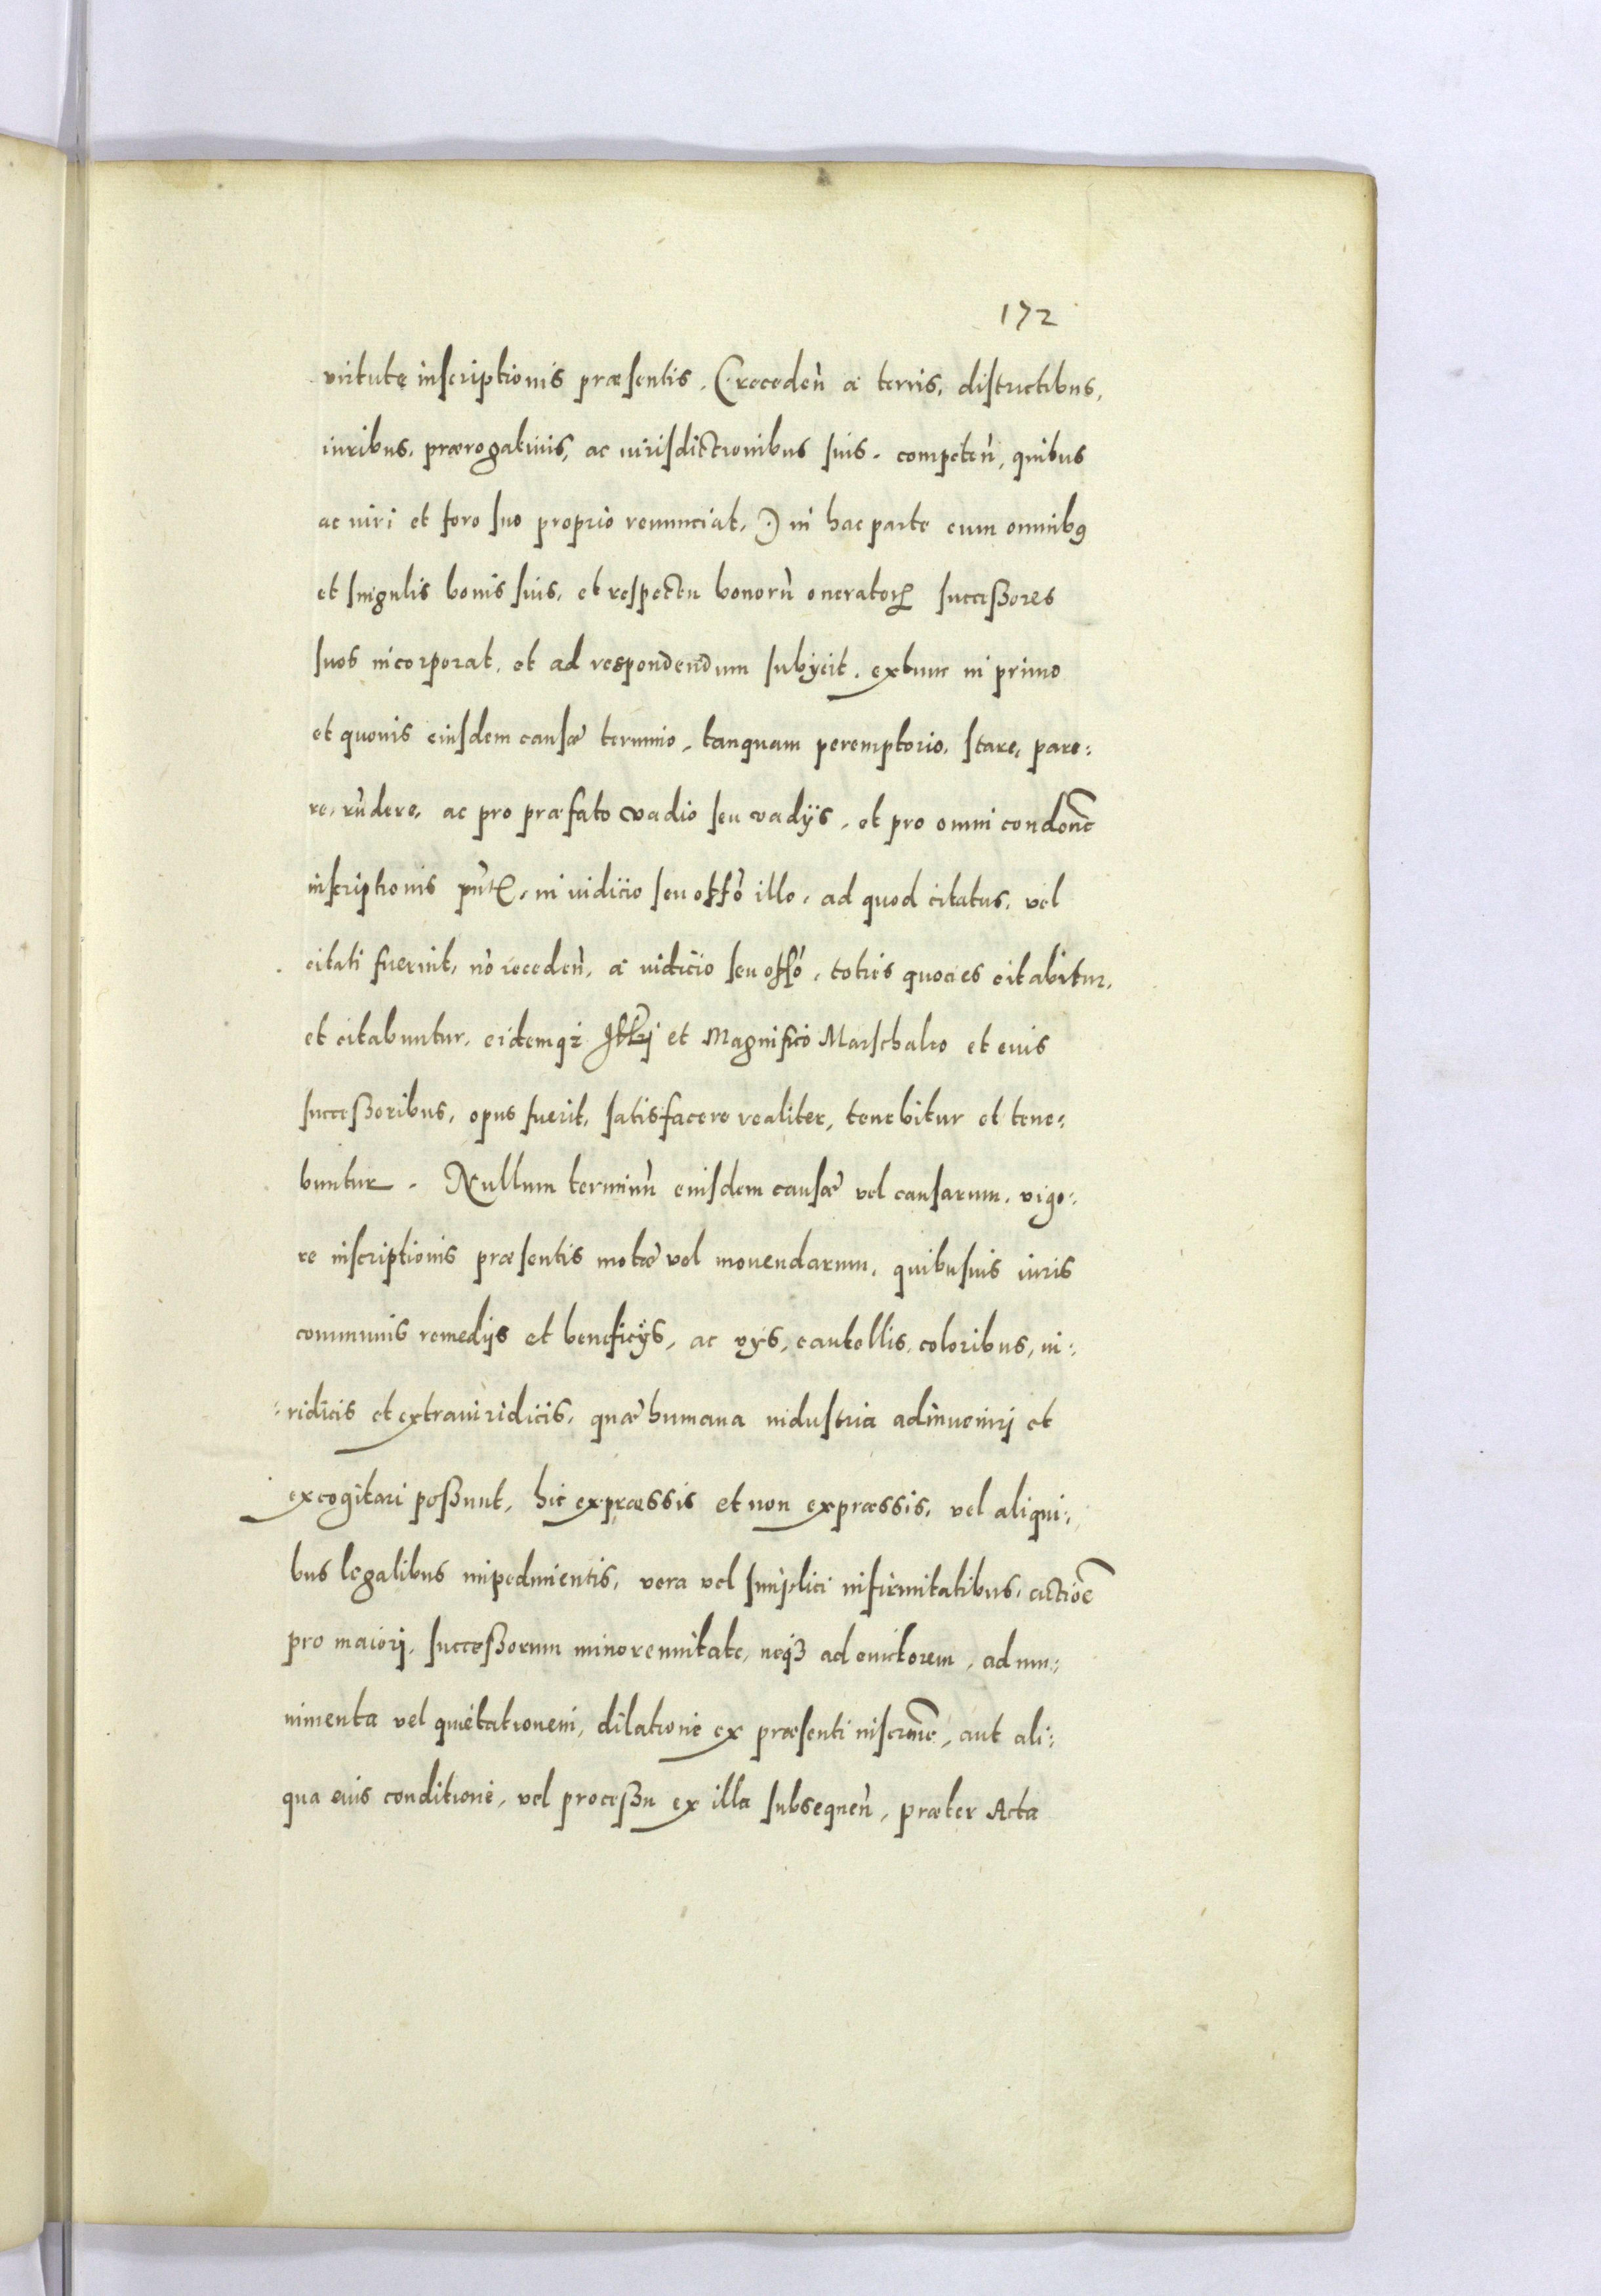 172
virtute inscriptionis præsentis. (receden̄ a terris, districtibus,
iuribus, prærogatiuis, ac iurisdictionibus suis. competen̄, quibus
ac iuri et foro suo proprio renunciat.) in hac parte cum omnibꝯ
et singulis bonis suis, et respectu bonorū oneratoꝝ successores
suos incorporat, et ad respondendum subijcit. extunc in primo
et quouis eiusdem causæ termino, tanquam peremptorio, stare, pare:
re, rūdere, ac pro præfato vadio seu vadijs, et pro omni condōne
inscriptionis pn̄tꝭ, in iudicio seu offō illo, ad quod citatus, vel
citati fuerint, nō receden̄, a iudicio seu offō, toties quocies citabitur,
et citabuntur, eidemqꝫ Illri et Magnifico Marschalco et eius
successoribus, opus fuerit, satisfacere realiter, tenebitur et tene:
buntur. Nullum terminū eiusdem causæ vel causarum, vigo:
re inscriptionis præsentis motæ vel mouendarum, quibusuis iuris
communis remedijs et beneficijs, ac vijs, cautellis, coloribus, iu:
:ridicis et extraiuridicis, quæ humana industria adinueniri et
excogitari possunt, hic expræssis et non expræssis, vel aliqui:
bus legalibus impedimentis, vera vel simplici infirmitatibus, actiōe
pro maiori, successorum minorennitate, neqꝫ ad euictorem, ad mu:
nimenta vel quietationem, dilatione ex præsenti inscrn̄e, aut ali:
qua eius conditione, vel processu ex illa subsequen̄, præter Acta